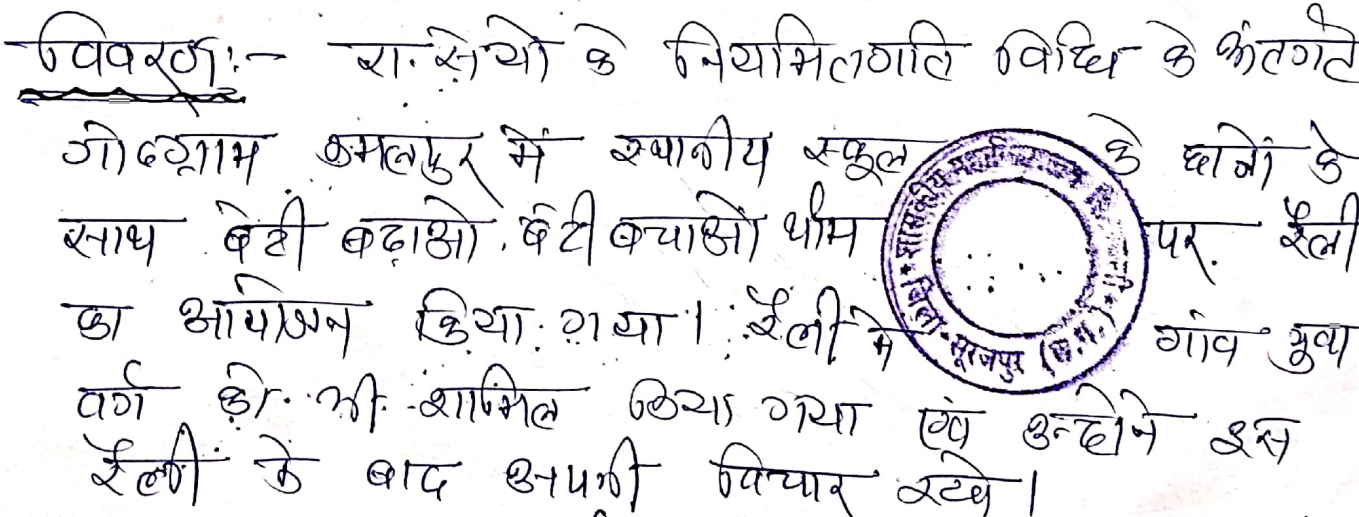 विवरण:- रा.से.यो के नियमितगति विधि के अंतर्गत
गोदग्राम कमलपुर में स्थानीय स्कूल के छात्रों के
साथ बेटी बढ़ाओ, बेटी बचाओ थीम पर रैली
का आयोजन किया गया। रैली में गांव युवा
वर्ग को भी शामिल किया गया एवं उन्होंने इस
रैली के बाद अपनी विचार रखे।
शासकीय
जिला-सूरजपुर (छ.ग.)